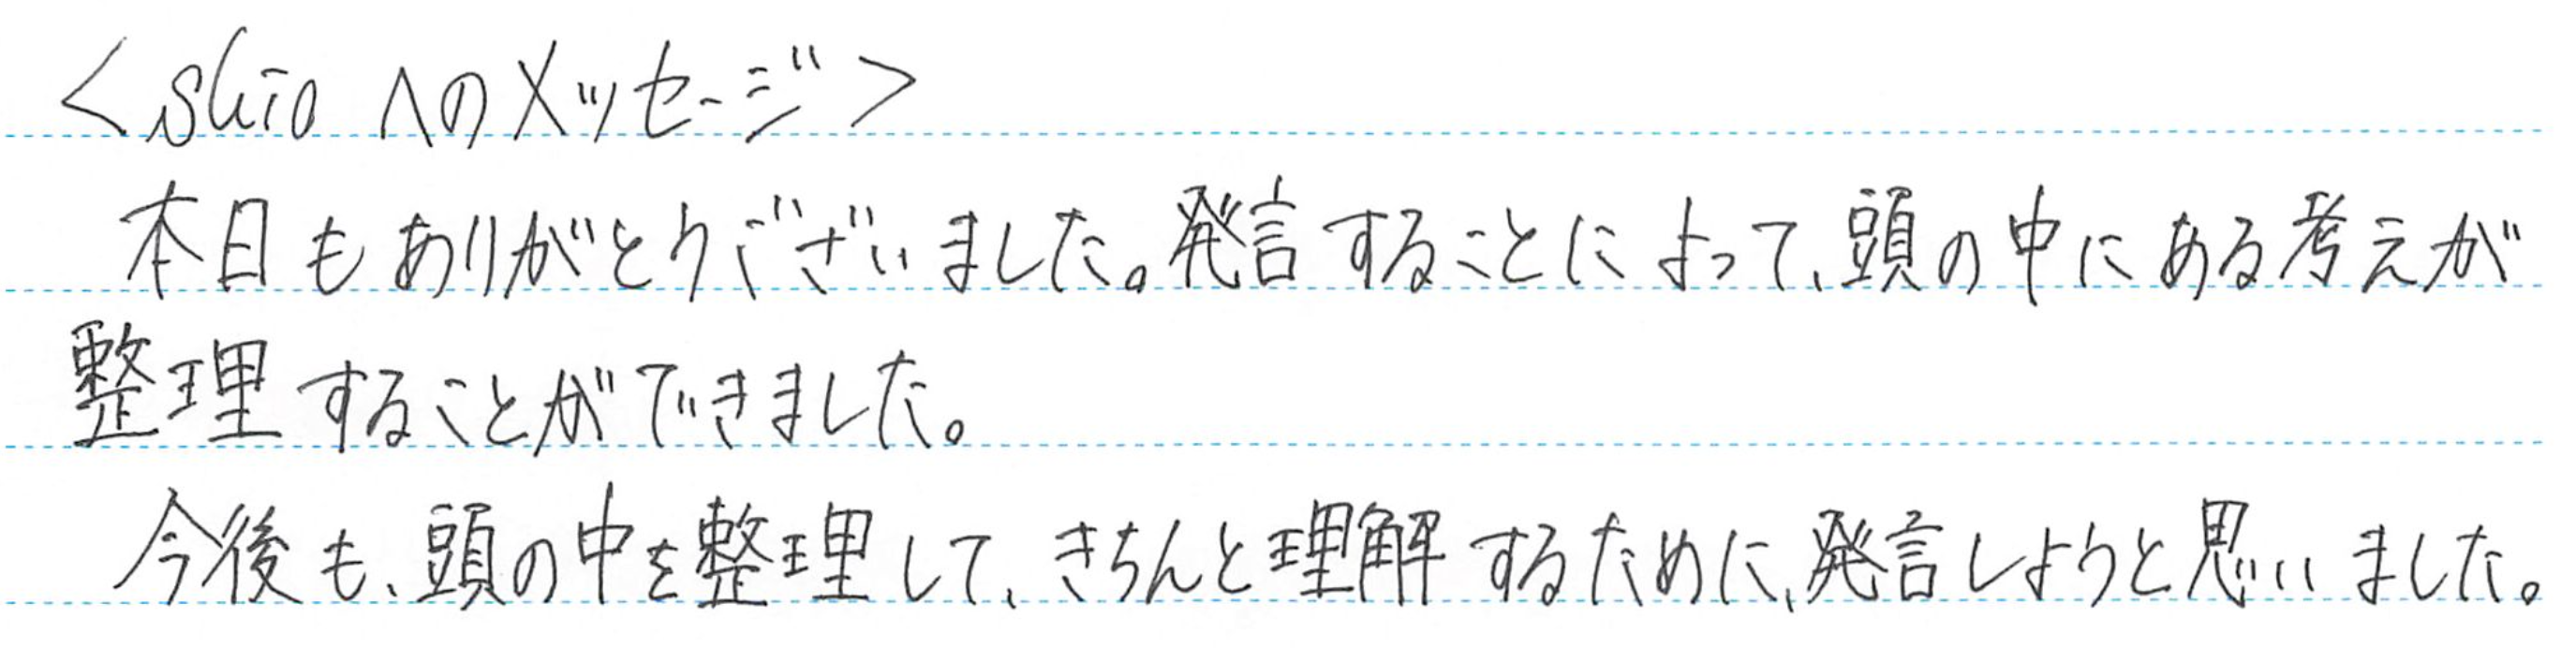 <shioへのメッセージ>
本日もありがとうございました。発言することによって、頭の中にある考えが
整理することができました。
今後も、頭の中を整理して、きちんと理解するために、発言しようと思いました。